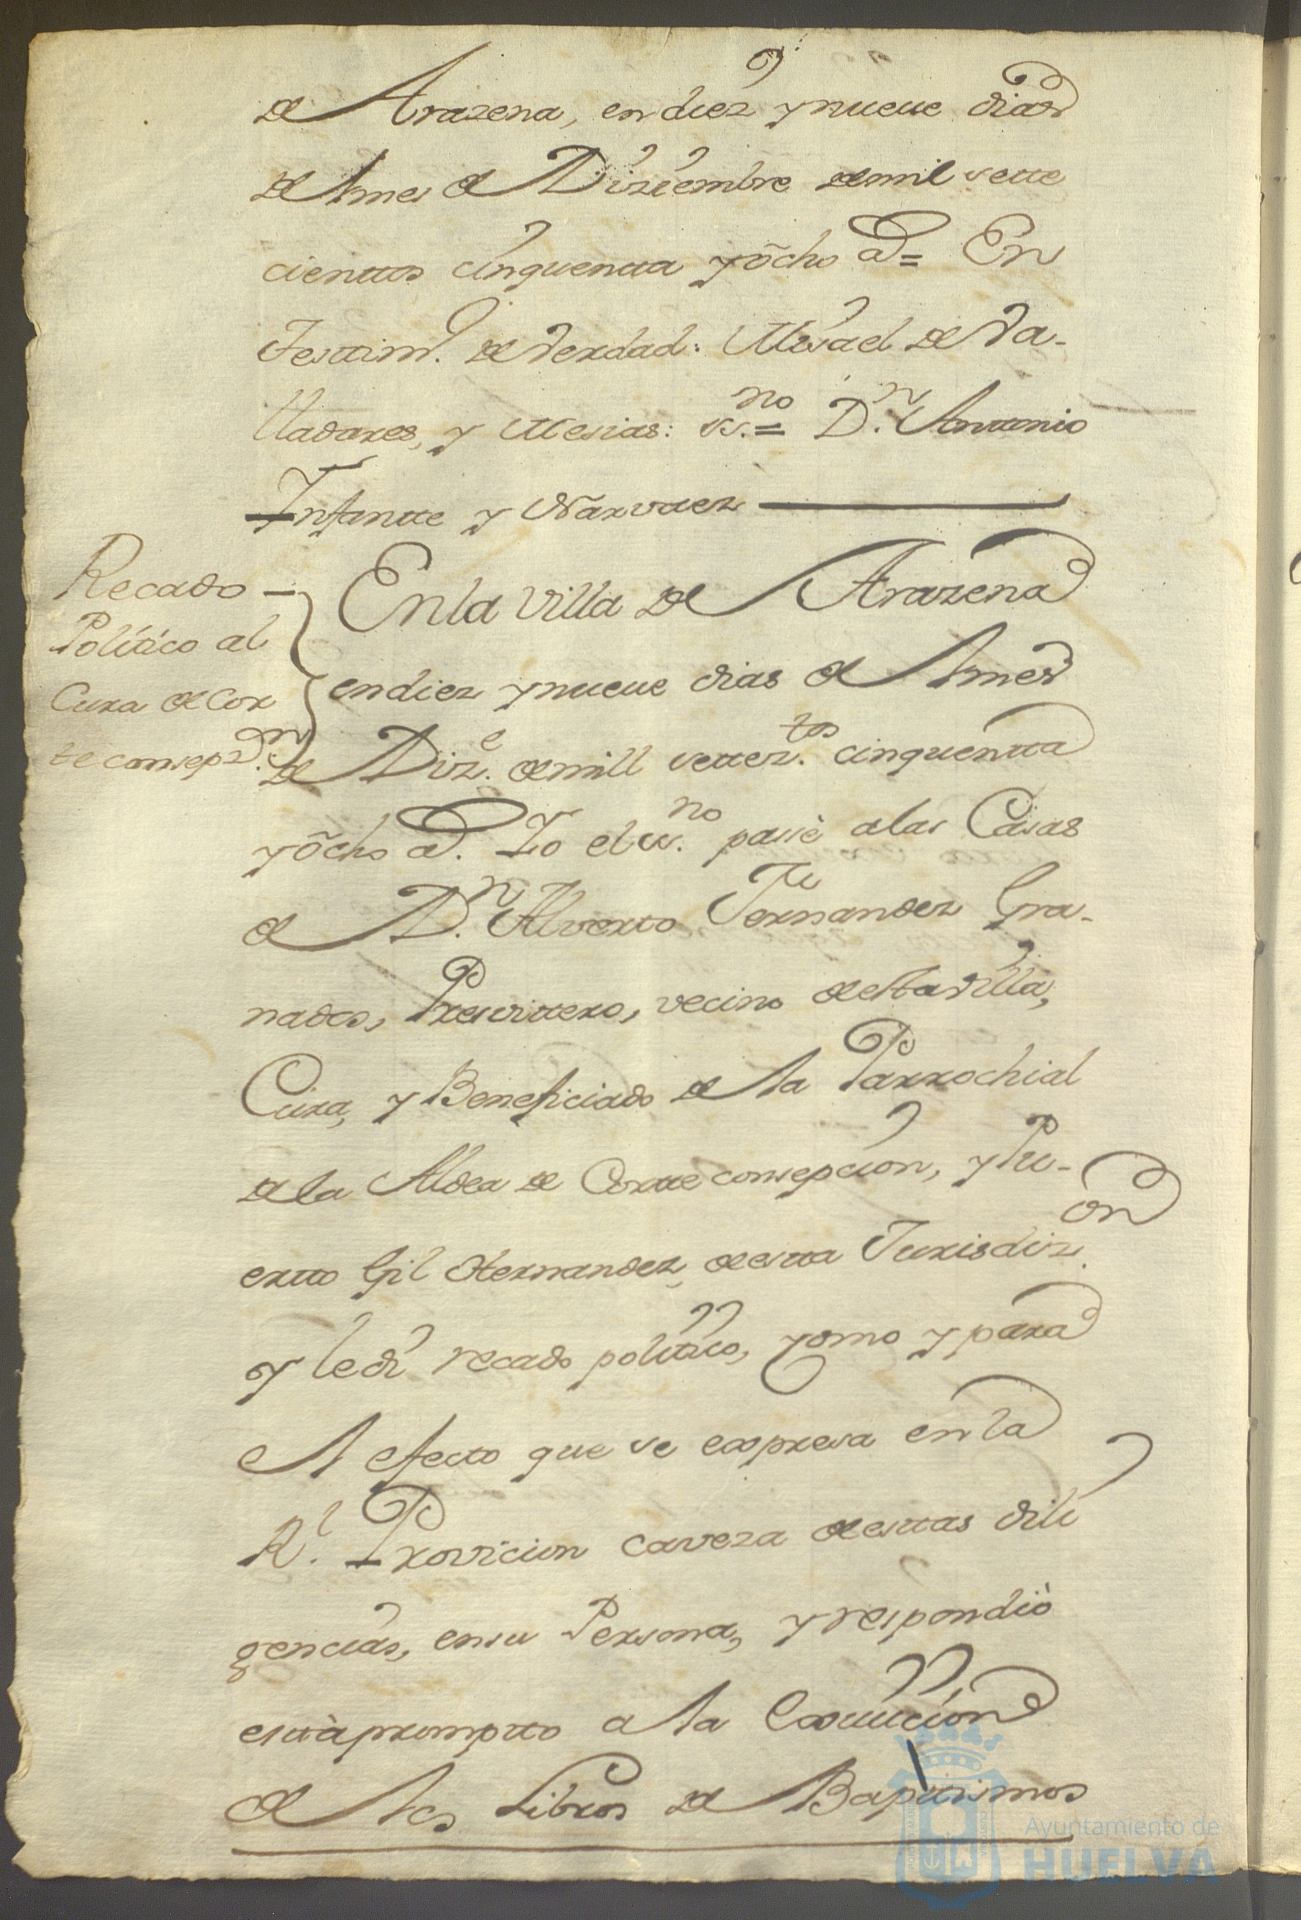 de Arazena, en diez y nueve dias
del mes de Diziembre de mil sette
cienttos cinquentta y ocho a.s= En
Testtim.º de verdad: Misael de Va-
lladares, y Mesias: ess.no= D.n Antonio
Infantte y Narvaez
Recado
Politico al
Cura de Cor
te consepz.on
En la Villa de Arazena
en diez y nueve dias del mes
de Diz.e de mill settez.tos cinquentta
y ocho a.s Yo el ess.no passè a las Casas
de D.n Alverto Fernandez Gra-
nados, Presvittero, vecino de esta Villa,
Cura, y Beneficiado de la Parrochial
de la Aldea de Cortte consepcion, y Pu-
ertto Gil Hernandez, de estta Jurisdiz.on
y le di recado politico, como y para
el efecto que se expresa en la
R.l Provicion caveza de esttas dili
gencias, en su Persona, y respondiò
esttà promptto a la Exxivicion
de los Libros de Bapttismos
Ayuntamiento de
HUELVA